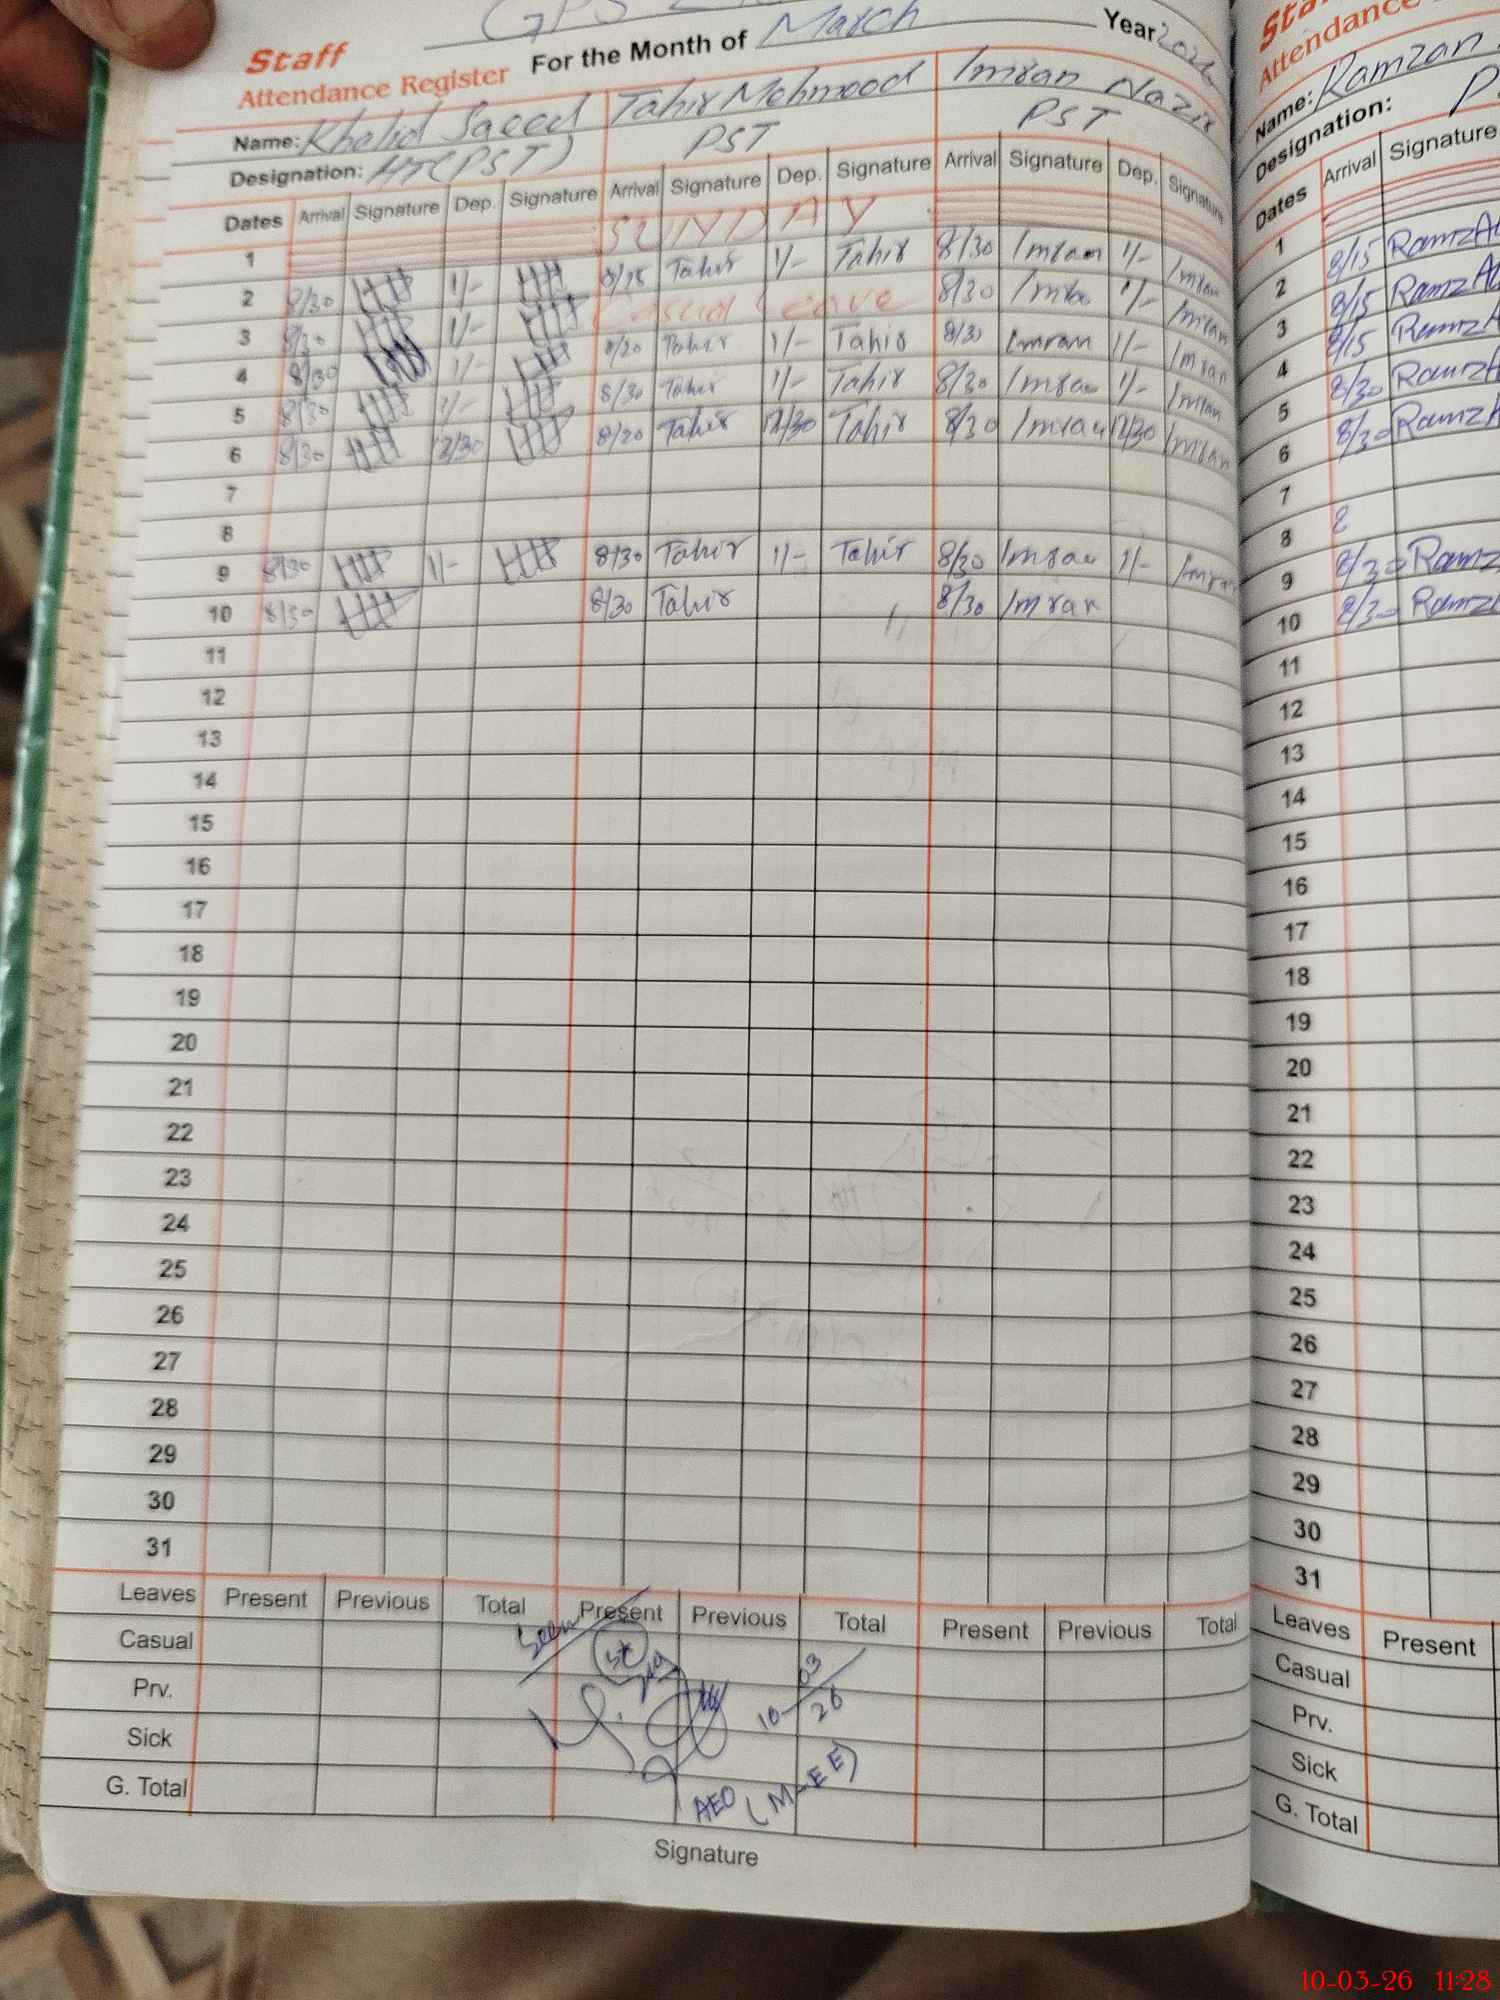 GPS
Staff
Attendance Register For the Month of March Year
Name: Khalid Saeed Tahir Mehmood Imran Nazir
Designation: HT(PST) PST PST
Dates Arrival Signature Dep. Signature Arrival Signature Dep. Signature Arrival Signature Dep. Signature
1 SUNDAY
2 8/30 1/- 8/15 Tahir 1/- Tahir 8/30 Imran 1/- Imran
3 8/30 1/- Casual Leave 8/30 Imra 1/- Imran
4 8/30 1/- 8/20 Tahir 1/- Tahir 8/30 Imran 1/- Imran
5 8/30 1/- 8/30 Tahir 1/- Tahir 8/30 Imran 1/- Imran
6 8/30 12/30 8/20 Tahir 12/30 Tahir 8/30 Imran 12/30 Imran
7
8
9 8/30 1/- 8/30 Tahir 1/- Tahir 8/30 Imran 1/- Imran
10 8/30 8/30 Tahir 8/30 Imran
11
12
13
14
15
16
17
18
19
20
21
22
23
24
25
26
27
28
29
30
31
Leaves Present Previous Total Present Previous Total Present Previous Total
Seen
Casual
Prv.
10-03/26
Sick
G. Total
AEO (M-EE)
Signature
Staff
Attendance
Name: Ramzan
Designation:
Dates Arrival Signature
1
2 8/15 Ramz
3 8/15 Ramz
4 8/15 Ramz
5 8/30 Ramz
6 8/30 Ramz
7
8 8
9 8/30 Ramz
10 8/30 Ramz
11
12
13
14
15
16
17
18
19
20
21
22
23
24
25
26
27
28
29
30
31
Leaves Present
Casual
Prv.
Sick
G. Total
10-03-26 11:28